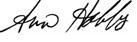 Ann Hobbs